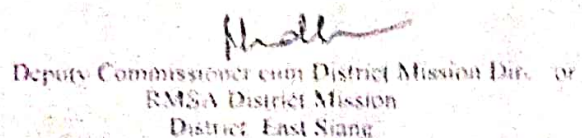 Deputy Commissioner cum District Mission Dir or
RMSA District Mission
District East Siang